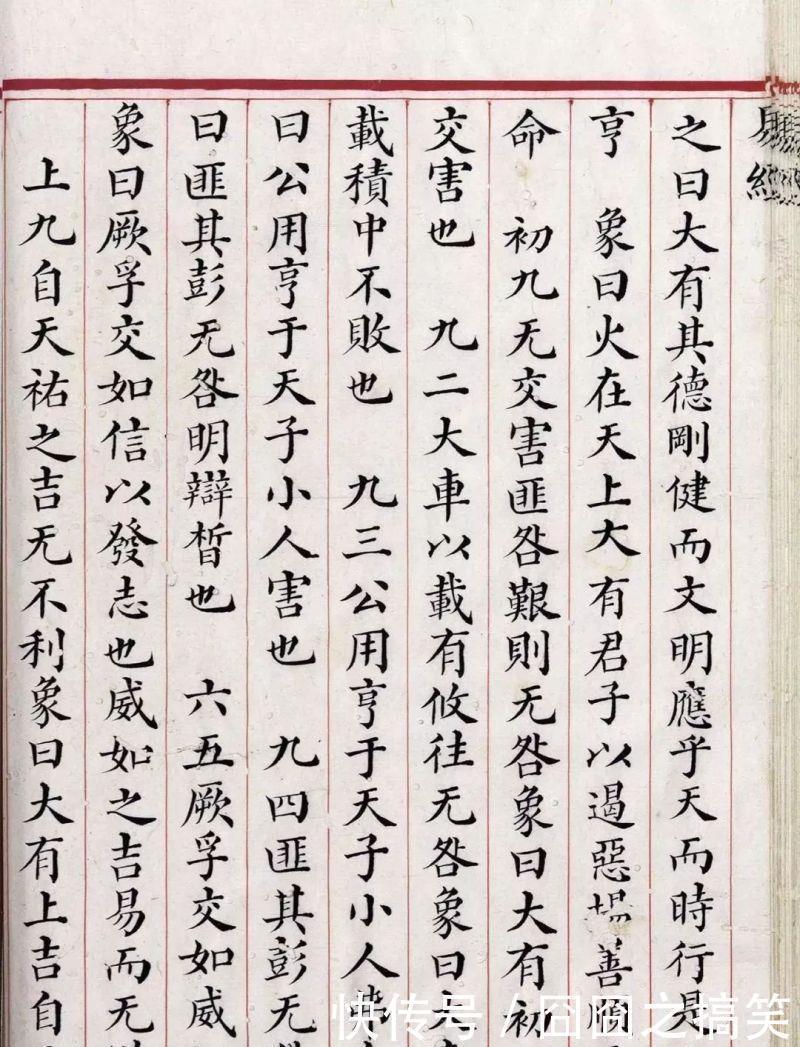 經
之曰大有其德剛健而文明應乎天而時行是
亨　象曰火在天上大有君子以遏惡揚善順
命　初九无交害匪咎艱則无咎象曰大有初
交害也　九二大車以載有攸往无咎象曰大
載積中不敗也　九三公用亨于天子小人弗
曰公用亨于天子小人害也　九四匪其彭无
曰匪其彭无咎明辯晳也　六五厥孚交如威
象曰厥孚交如信以發志也威如之吉易而无
上九自天祐之吉无不利象曰大有上吉自
快传号 / 囧囧之搞笑